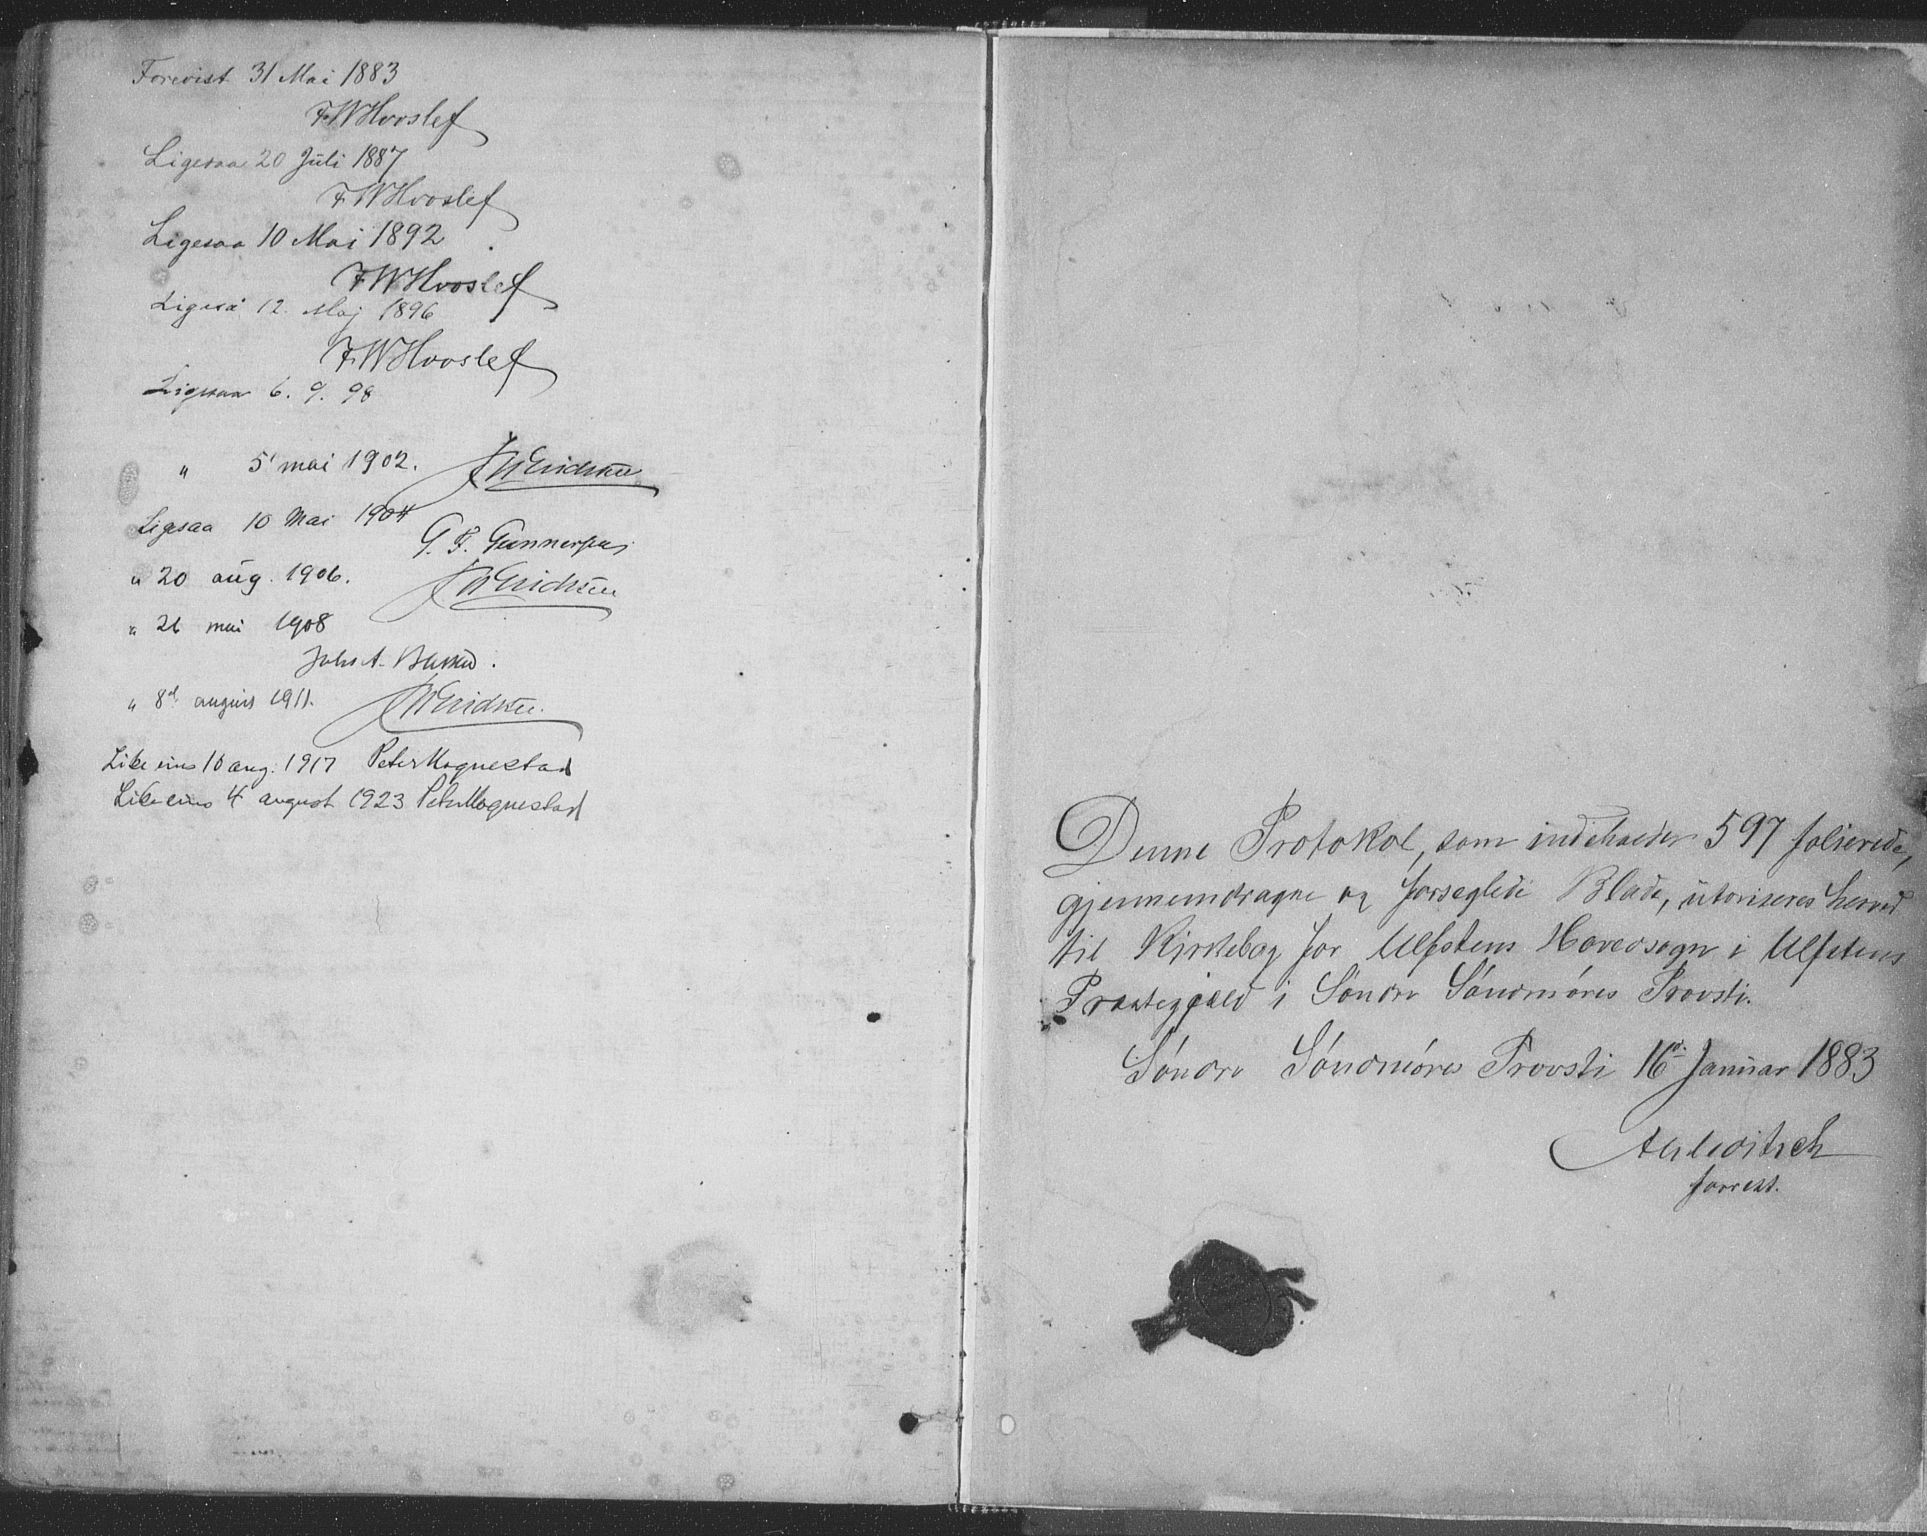 Forevist 31 Mai 1883
FWHvoslef
Ligesaa 20 Juli 1887
FWHvoslef
Ligesaa 10 Mai 1892
FWHvoslef
Ligeså 12. Maj 1896
FWHvoslef
Ligesaa 6. 9. 98
" 5' mai 1902.
Ligesaa 10 Mai 1904
G. F. Gunnersen
" 20 aug. 1906.
" 26 mai 1908
" 8d august 1911.
Like eins 10 aug. 1917 Peter Hognestad
Like eins 4 august 1923 Peter Hognestad
Denne Protokol, som indeholder 597 folierede,
gjennemdragne og forseglede Blade, autoriseres herved
til Kirkebog for Ulfstens Hovedsogn i Ulfstens
Præstegjeld i Søndre Søndmøres Provsti.
Søndre Søndmøres Provsti 16d. Januar 1883